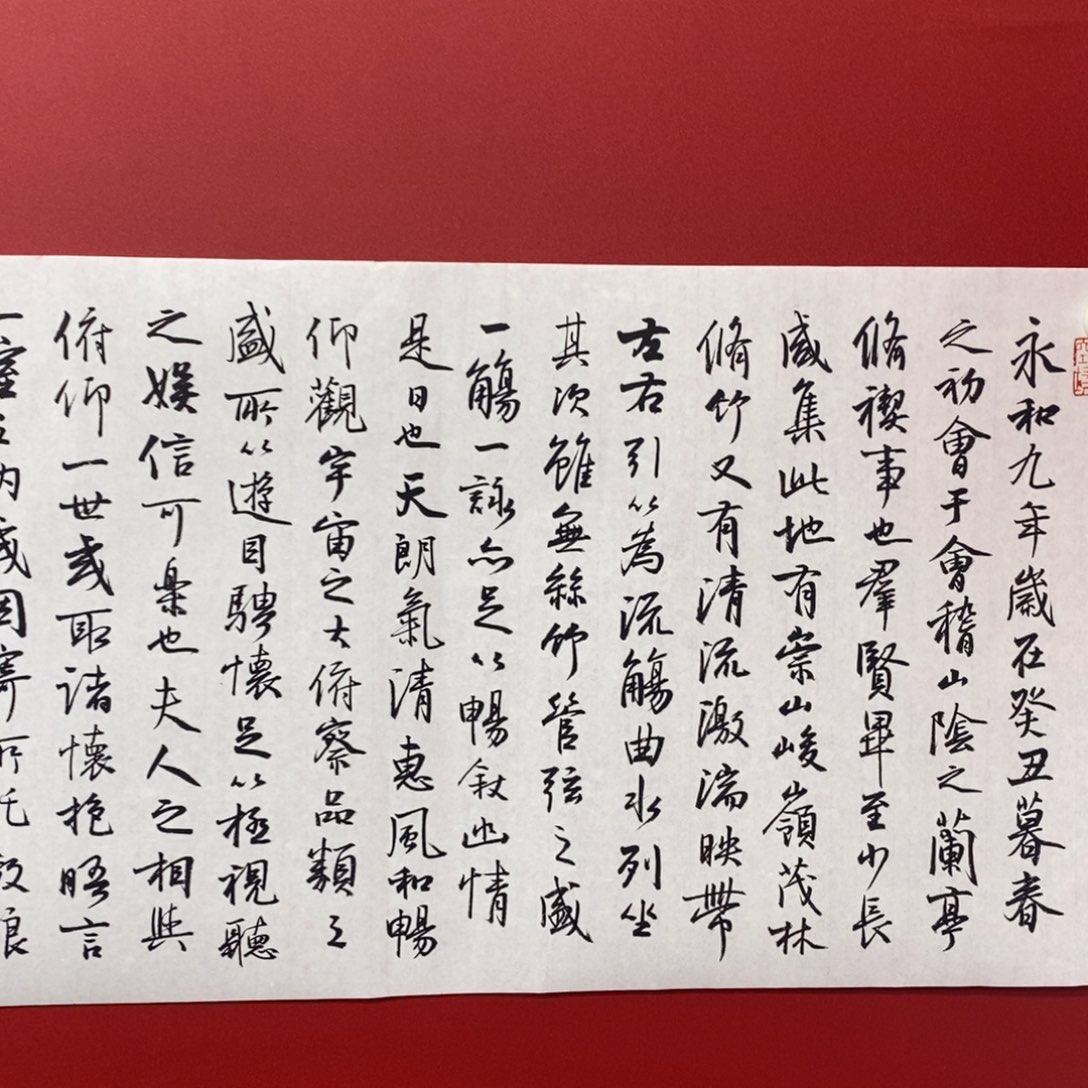 永和九年歲在癸丑暮春
之初會于會稽山陰之蘭亭
脩禊事也羣賢畢至少長
咸集此地有崇山峻嶺茂林
脩竹又有清流激湍映帶
左右引以為流觴曲水列坐
其次雖無絲竹管弦之盛
一觴一詠亦足以暢敘幽情
是日也天朗氣清惠風和暢
仰觀宇宙之大俯察品類之
盛所以遊目騁懷足以極視聽
之娛信可樂也夫人之相與
俯仰一世或取諸懷抱晤言
一室之內或因寄所托放浪